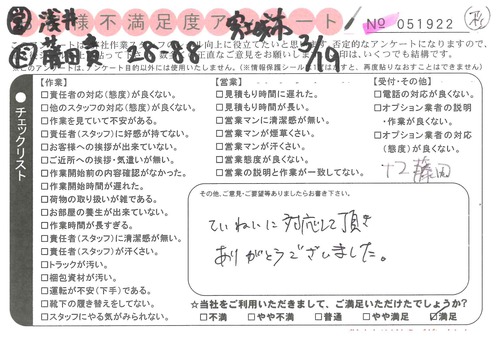 営 浅井 様不満足度アンケート 宝塚市 No 051922
Ⓓ 藤田貴 28888 3/19
【作業】
□責任者の対応(態度)が良くない。
□他のスタッフの対応(態度)が良くない。
□作業を見ていて不安がある。
□責任者(スタッフ)に好感が持てない。
□お客様への挨拶が出来ていない。
□ご近所への挨拶・気遣いが無い。
□作業開始前の内容確認がなかった。
□作業開始時間が遅れた。
□荷物の取り扱いが雑である。
□お部屋の養生が出来ていない。
□作業時間が長すぎる。
□責任者(スタッフ)に清潔感が無い。
□責任者(スタッフ)が汗くさい。
□トラックが汚い。
□梱包資材が汚い。
□運転が不安(下手)である。
□靴下の履き替えをしてない。
□スタッフにやる気がみられない。
【営業】
□見積もり時間に遅れた。
□見積もり時間が長い。
□営業マンに清潔感が無い。
□営業マンが煙草くさい。
□営業マンが汗くさい。
□営業態度が良くない。
□営業の説明と作業が一致してない。
【受付・その他】
□電話の対応が良くない。
□オプション業者の説明
・作業が良くない。
□オプション業者の対応
(態度)が良くない。
藤田
チェックリスト
その他、ご意見・ご要望等ありましたらお書き下さい。
ていねいに対応して頂き
ありがとうございました。
☆当社をご利用いただきまして、ご満足いただけたでしょうか?
□不満 □やや不満 □普通 □やや満足 ☑満足